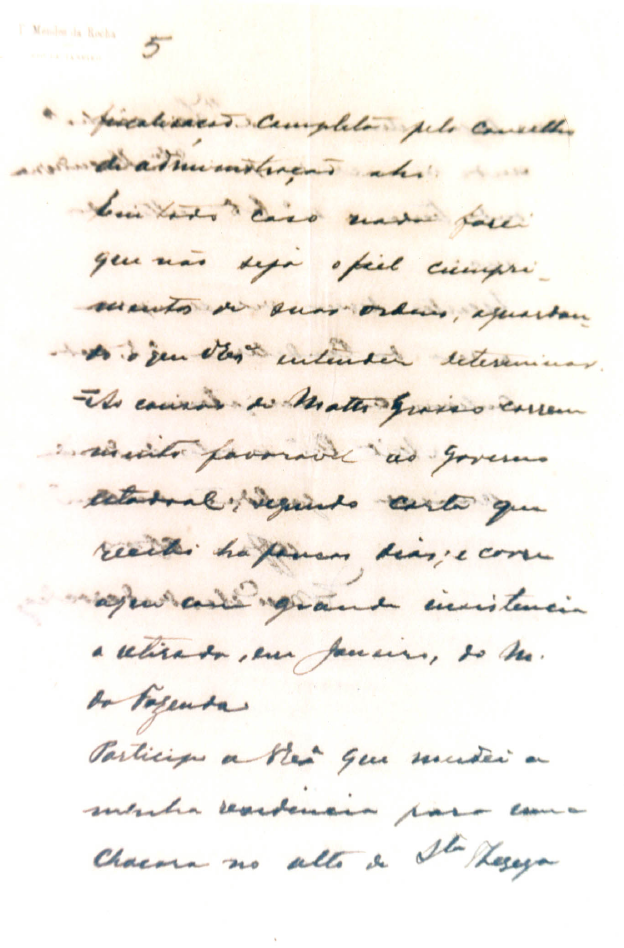 F. Mendes da Rocha
5
fiscalisação completa pelo conselho
de administração ahi.
Em todo caso nada farei
que não seja o fiel cumpri-
mento de suas ordens, aguardan-
do o que VExª entender determinar.
=As cousas de Matto Grosso correm
muito favoravel ao Governo
estadoal, segundo carta que
recebi ha poucos dias; e corre
aqui com grande insistencia
a retirada, em Janeiro, do M.
da Fazenda.
Participo a VExª que mudei a
minha residencia para uma
Chacara no alto de Sta Thereza